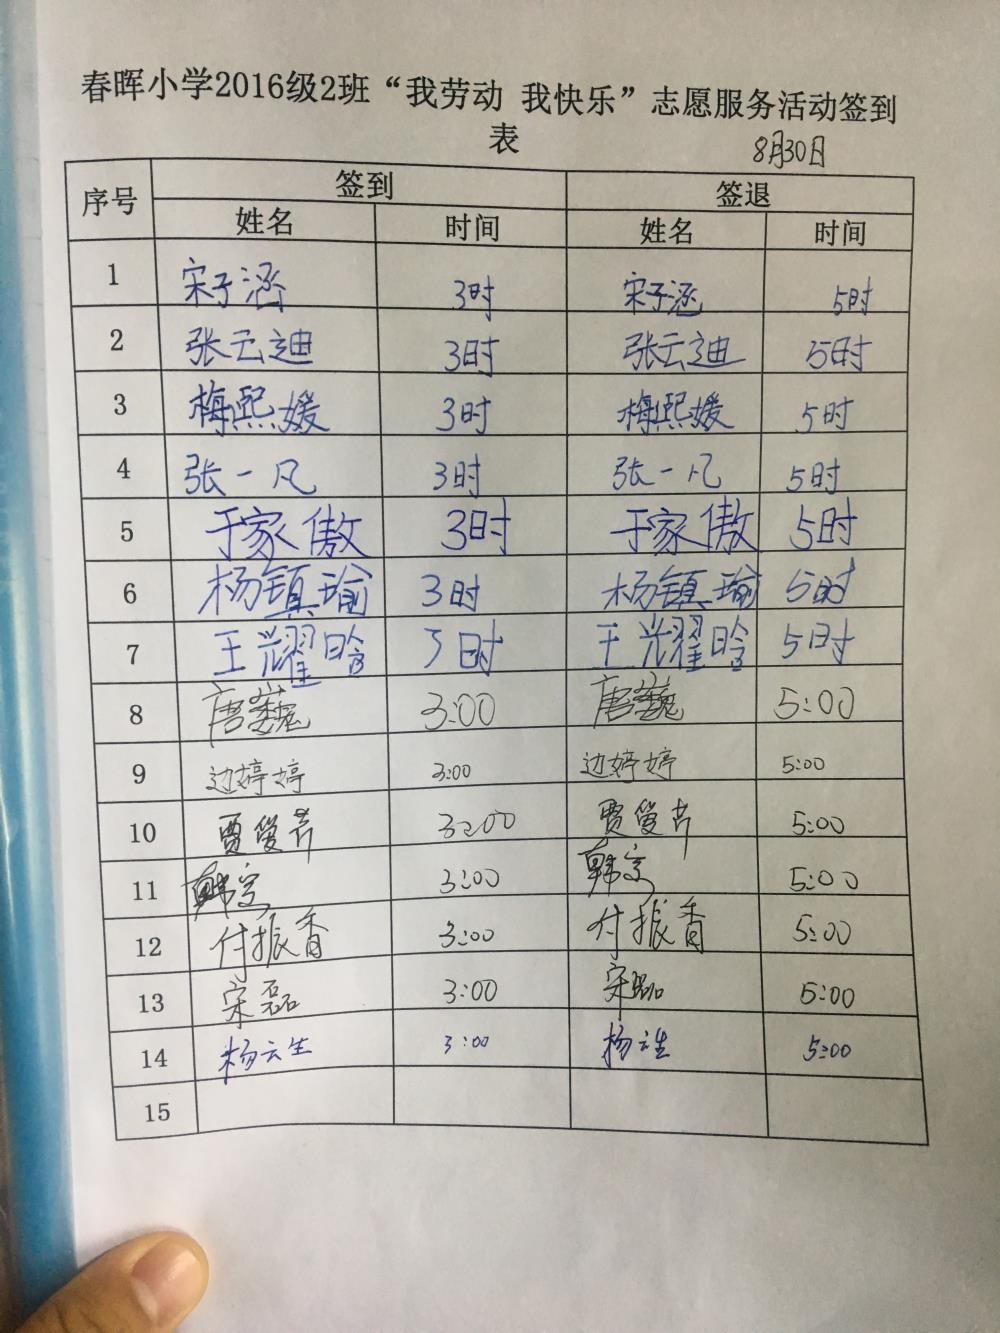 春晖小学2016级2班“我劳动 我快乐”志愿服务活动签到
表
8月30日
序号 签到 签退
姓名 时间 姓名 时间
1 宋子涵 3时 宋子涵 5时
2 张云迪 3时 张云迪 5时
3 梅熙媛 3时 梅熙媛 5时
4 张一凡 3时 张一凡 5时
5 于家傲 3时 于家傲 5时
6 杨镇瑜 3时 杨镇瑜 5时
7 王耀晗 3时 王耀晗 5时
8 唐巍 3:00 唐巍 5:00
9 边婷婷 3:00 边婷婷 5:00
10 贾 3:00 贾 5:00
11 韩 3:00 韩 5:00
12 付振香 3:00 付振香 5:00
13 宋磊 3:00 宋磊 5:00
14 杨云生 3:00 杨云生 5:00
15